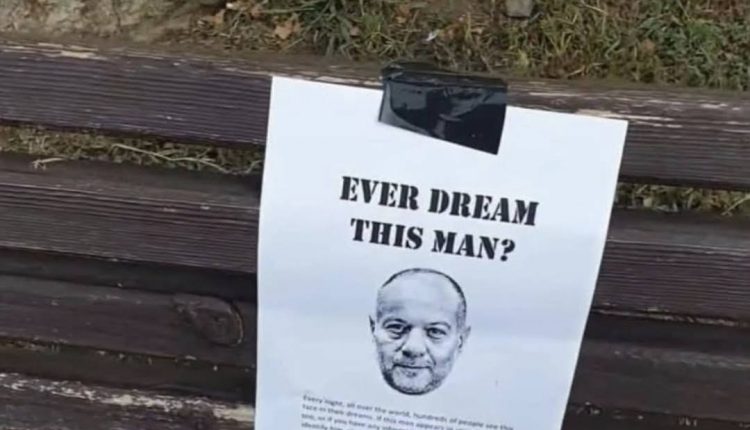 EVER DREAM
THIS MAN?
Every night, all over the world, hundreds of people see this
face in their dreams. If this man appears in
too, or if you have any
identify him